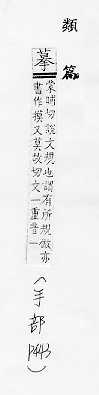 類篇
摹
蒙晡切說文規也謂有所規倣亦
書作摸又莫故切文一重音一
(手部 P443)